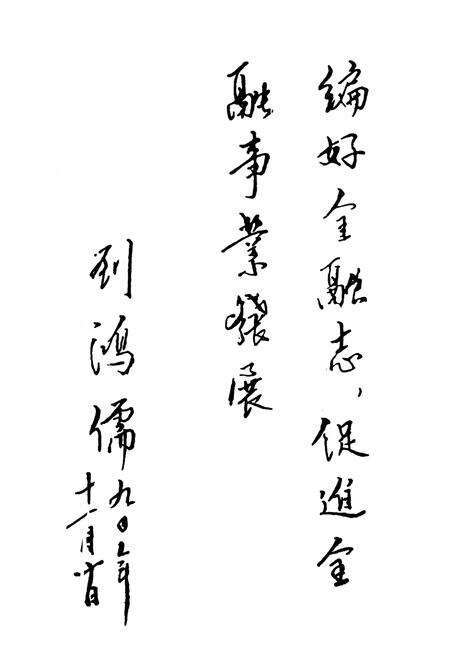 编好金融志,促進金
融事業發展
刘鴻儒
九〇年
十一月